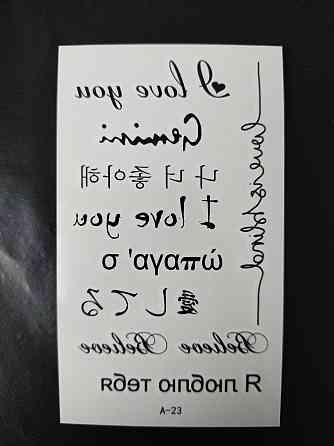 I love you
Gemini
나 너 좋아해
I love you
σ 'αγαπώ
愛してる
Believe Believe
Я люблю тебя
love is blind
A-23